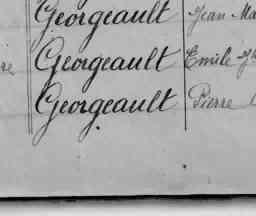 Georgeault Jean Ma
re Georgeault Emile
Georgeault Pierre